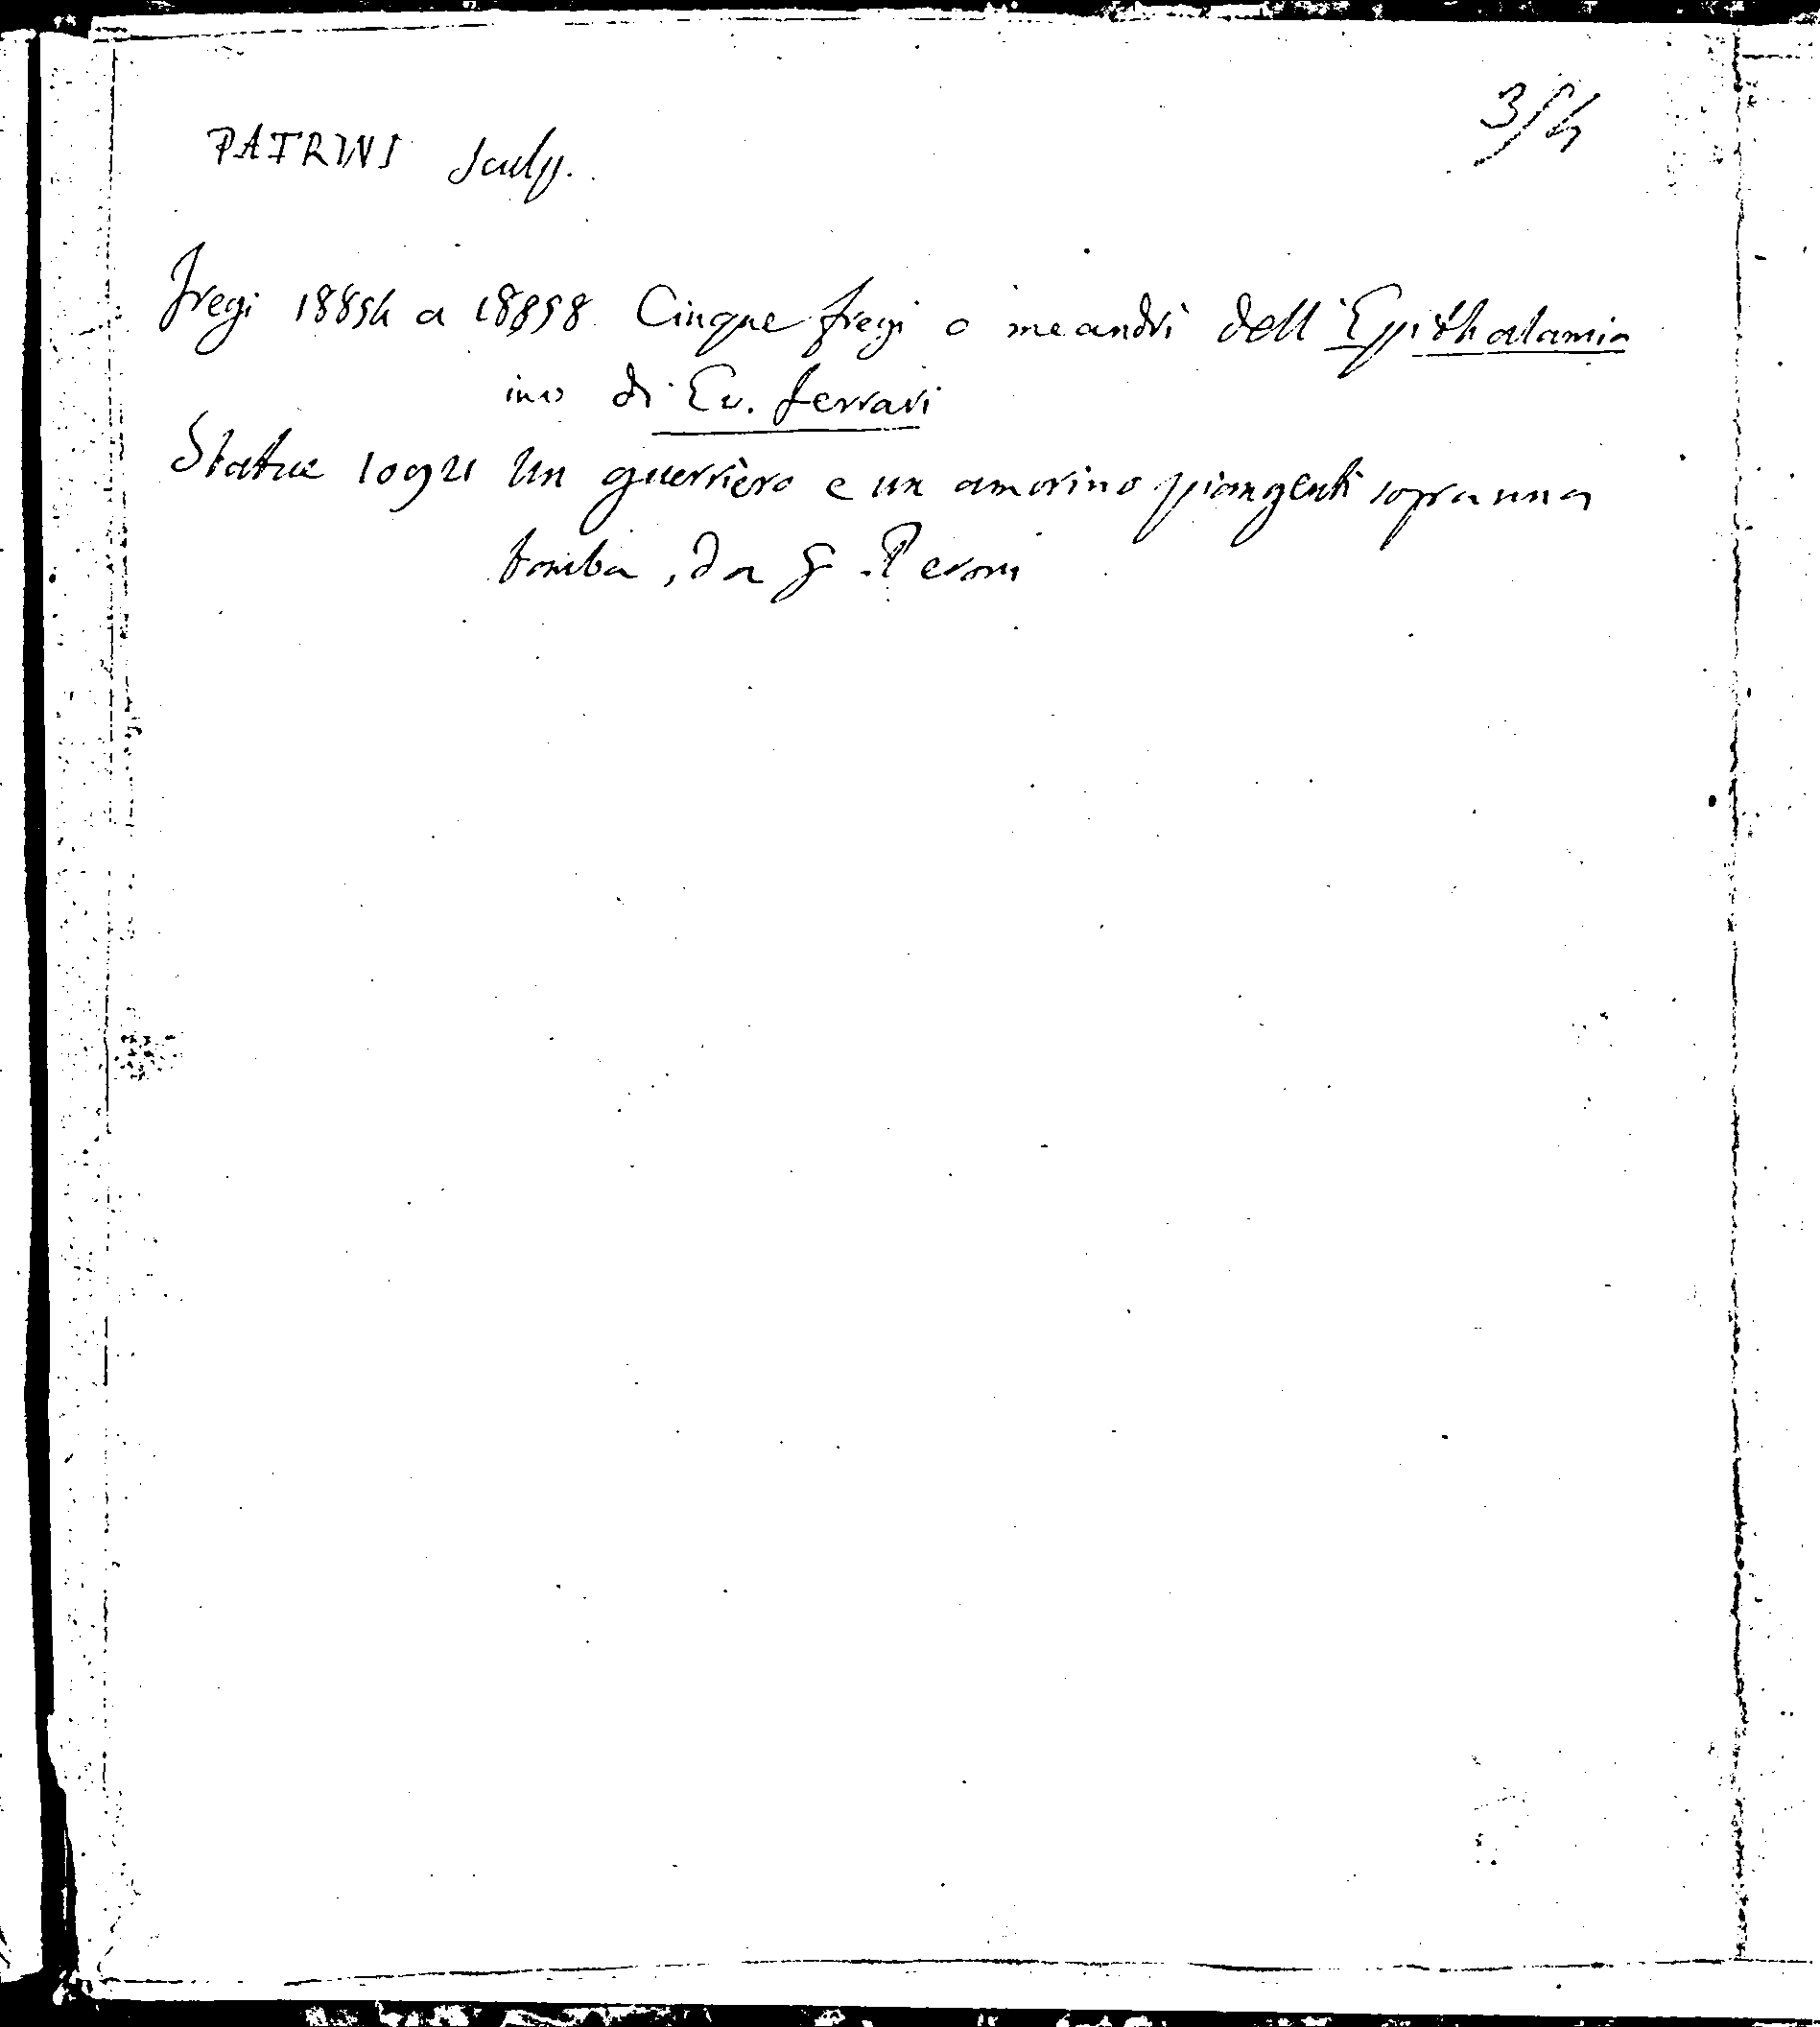 3/4
PATRINI sculp.
Fregi 18854 a 18858 Cinque fregi o meandri dell'Epithalamia
ino di Ev. Ferrari
Statue 10921 Un guerriero e un amorino piangenti sopra una
tomba, da G. Peroni